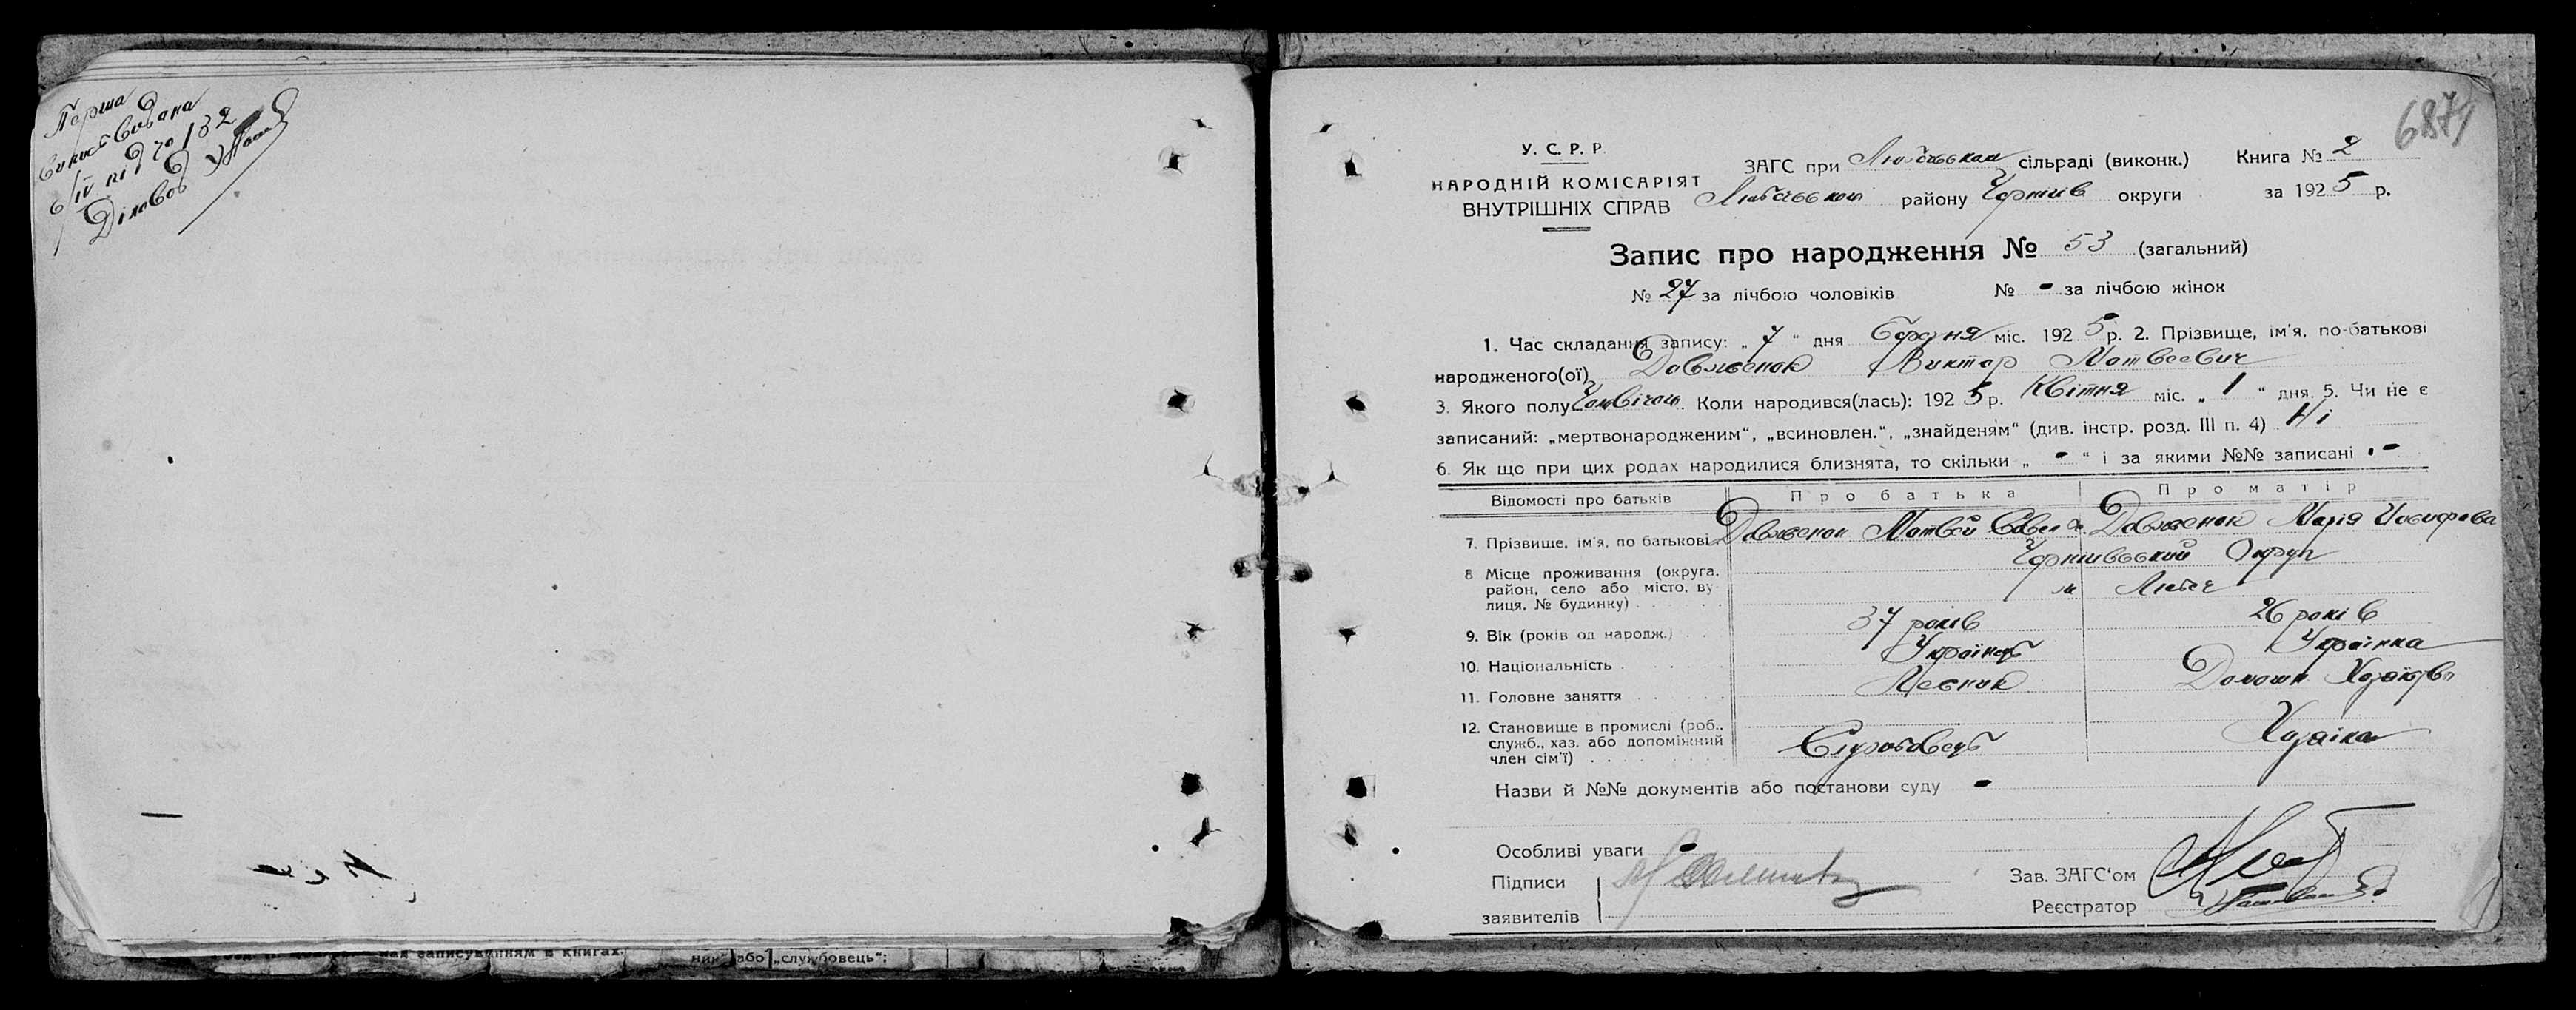 Перша
випись видана
6/IV під № 132
Діловод
687
У. С. Р. Р.
НАРОДНІЙ КОМІСАРІЯТ
ВНУТРІШНІХ СПРАВ
ЗАГС при Любечськом сільраді (виконк.) Книга № 2
Любечськом району Черниг округи за 1925 р.
Запис про народження № 53 (загальний)
№ 27 за лічбою чоловіків № - за лічбою жінок
1. Час складання запису: „ 7 " дня міс. 1925 р. 2. Прізвище, ім'я, по-батькові
народженого(ої) Довженок Виктор Матвеевич
3. Якого полу Коли народився(лась): 1925 р. Квітня міс. „ 1 " дня. 5. Чи не є
записаний: „мертвонародженим", „всиновлен.", „знайденям" (див. інстр. розд. III п. 4) Ні
6. Як що при цих родах народилися близнята, то скільки „ - " і за якими №№ записані -
Відомості про батьків Про батька Про матір
7. Прізвище, ім'я, по батькові Довженок Матвей Довженок Марія Иосифова
8 Місце проживання (округа, район, село або місто, вулиця, № будинку) Округи
м Любеч
9. Вік (років од народж.) 37 років 26 років
10. Національність Українець Українка
11. Головне заняття Лесник Домашн
12. Становище в промислі (роб., служб., хаз. або допоміжний член сім'ї) Службовець Хазяіка
Назви й №№ документів або постанови суду -
Особливі уваги -
Підписи
заявителів
Зав. ЗАГС'ом
Реєстратор
над записуванням в книгах.
ник" або „службовець";